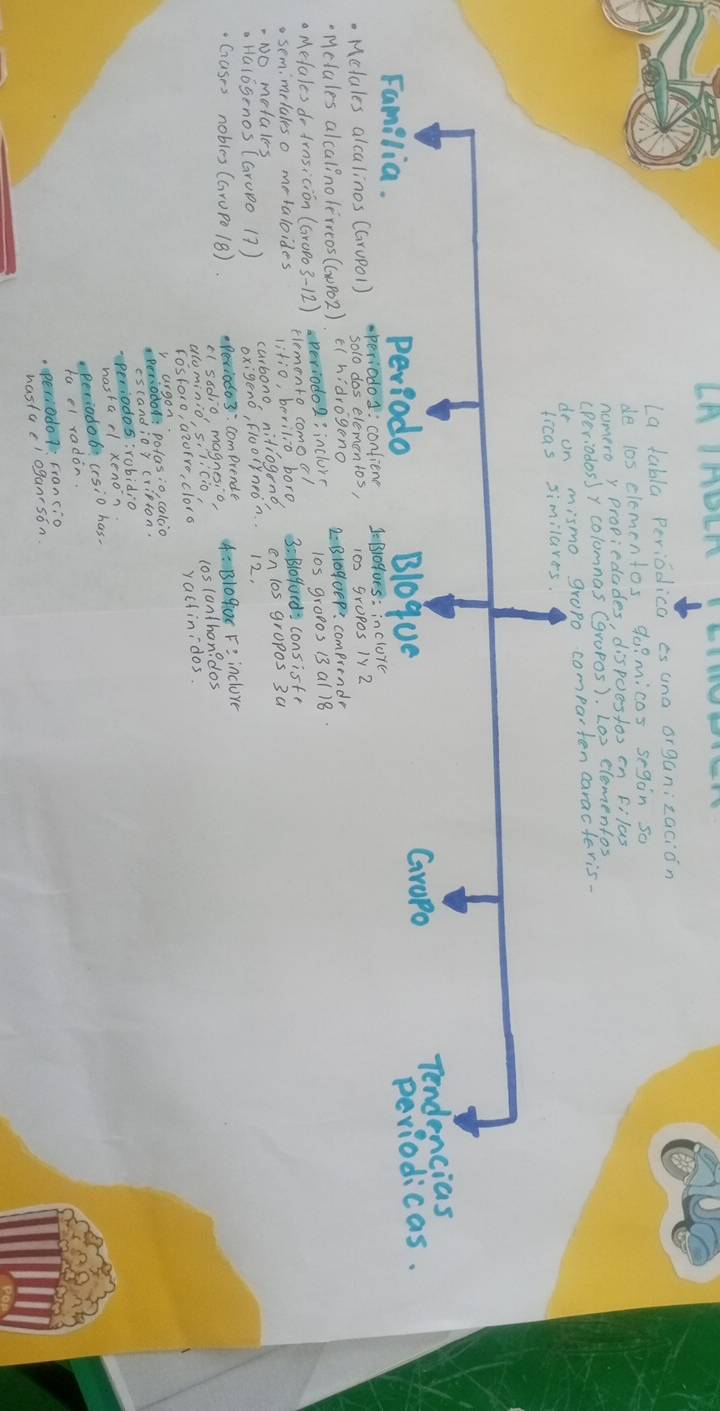 LA TABLA PERIODICA
La tabla Periódica es una organización
de los elementos químicos según so
número y propiedades dispuestos en Filas
(periodos) y columnas (grupos). Los elementos
de un mismo grupo comparten caracteris-
ticas similares.
Familia.
• Metales alcalinos (Grupo1)
• Metales alcalinotérreos (Grupo2)
• Metales de trnsición (Grupo 3-12)
• semimetales o metaloides
• No metales
• Halógenos (Grupo 17)
• Gases nobles (Grupo 18).
Periodo
• Periodo 1: contiene
solo dos elementos,
el hidrógeno
• Periodo 2: incluye
elemento como el
litio, berilio boro,
carbono, nitrógeno,
oxigeno, Fluor y neón..
• Periodo 3: comprende
el sodio, magnesio,
aluminio, silicio,
Fósforo, azufre, cloro
y argon.
• Periodo 4: potasio, calcio
escandio y cripton.
- Periodo 5: rubidio
hasta el xenón.
• Periodo 6: cesio has-
ta el radón.
• Periodo 7: Francio
hasta el oganesón.
Bloque
1- Bloque s: incluye
los grupos 1 y 2
2- Bloque P: comprende
los grupos 13 al 18.
3- Bloque d: consiste
en los grupos 3 a
12.
4- Bloque F: incluye
los lanthanidos
y actinidos.
Grupo
Tendencias
periodicas.
POP